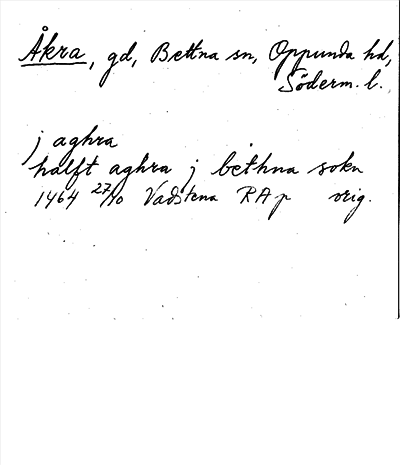 Åkra, gd, Bettna sn, Oppunda hd,
Söderm. l.
j aghra
halft aghra j bethna sokn
1464 27/10 Vadstena RAp orig.